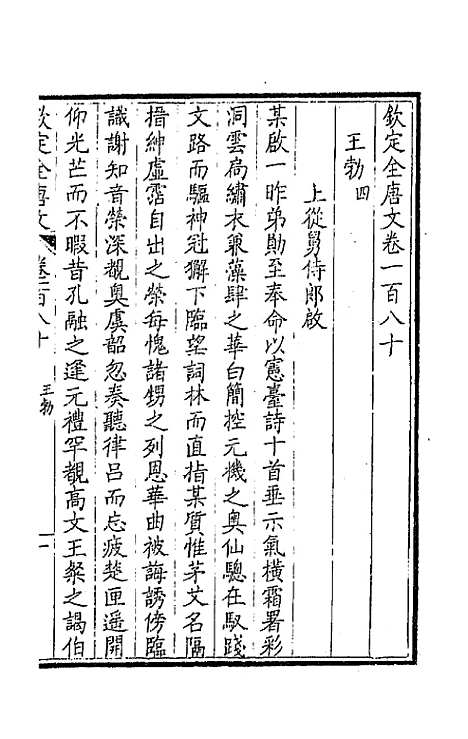 欽定全唐文卷一百八十
王勃四
上從舅侍郎啟
某啟一昨弟勛至奉命以憲臺詩十首垂示氣橫霜署彩
洞雲扃繡衣兼藻肆之華白簡控元機之奧仙驄在馭踐
文路而驅神冠獬下臨望詞林而直指某質惟茅艾名隔
搢紳虛霑自出之榮每愧諸甥之列恩華曲被誨誘傍臨
識謝知音榮深觀奧虞韶忽奏聽律呂而忘疲楚匣遥開
仰光芒而不暇昔孔融之逢元禮罕觀高文王粲之謁伯
欽定全唐文
卷一百八十
王勃
一